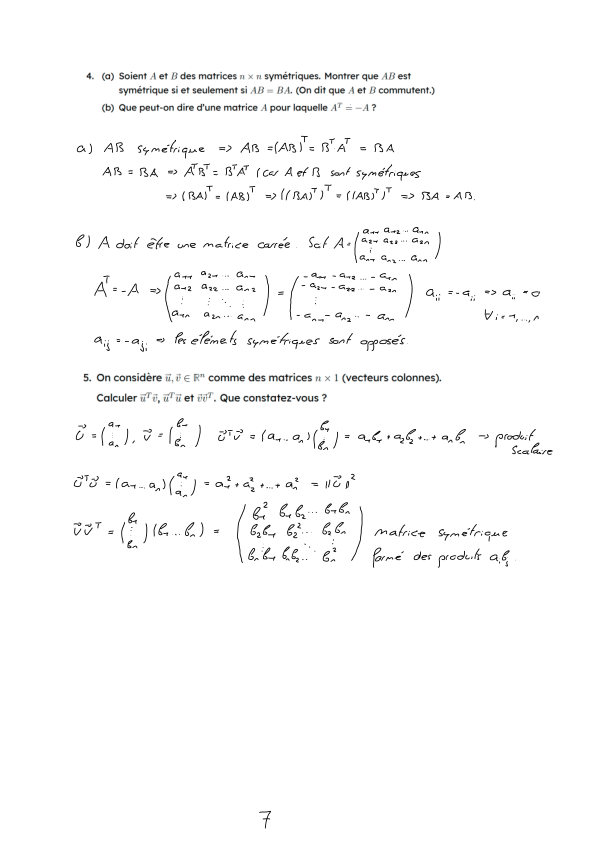 4. (a) Soient A et B des matrices n × n symétriques. Montrer que AB est
symétrique si et seulement si AB = BA. (On dit que A et B commutent.)
(b) Que peut-on dire d'une matrice A pour laquelle Aᵀ = −A ?
a) AB symétrique => AB = (AB)ᵀ = BᵀAᵀ = BA
AB = BA => AᵀBᵀ = BᵀAᵀ (car A et B sont symétriques
=> (BA)ᵀ = (AB)ᵀ => ((BA)ᵀ)ᵀ = ((AB)ᵀ)ᵀ => BA = AB.
b) A doit être une matrice carrée. Soit A = (a₁₁ a₁₂ ... a₁ₙ
a₂₁ a₂₂ ... a₂ₙ
⋮
aₙ₁ aₙ₂ ... aₙₙ)
Aᵀ = −A => (a₁₁ a₂₁ ... aₙ₁
a₁₂ a₂₂ ... aₙ₂
⋮ ⋮ ⋱ ⋮
a₁ₙ a₂ₙ ... aₙₙ) = (−a₁₁ −a₁₂ ... −a₁ₙ
−a₂₁ −a₂₂ ... −a₂ₙ
⋮
−aₙ₁ −aₙ₂ ... −aₙₙ) aᵢᵢ = −aᵢᵢ => aᵢᵢ = 0
∀ i = 1, ..., n
aᵢⱼ = −aⱼᵢ => les élémets symétriques sont opposés.
5. On considère u⃗, v⃗ ∈ ℝⁿ comme des matrices n × 1 (vecteurs colonnes).
Calculer u⃗ᵀv⃗, u⃗ᵀu⃗ et v⃗v⃗ᵀ. Que constatez-vous ?
u⃗ = (a₁ ⋮ aₙ), v⃗ = (b₁ ⋮ bₙ) u⃗ᵀv⃗ = (a₁ ... aₙ)(b₁ ⋮ bₙ) = a₁b₁ + a₂b₂ + ... + aₙbₙ → produit
scalaire
u⃗ᵀu⃗ = (a₁ ... aₙ)(a₁ ⋮ aₙ) = a₁² + a₂² + ... + aₙ² = ||u⃗||²
v⃗v⃗ᵀ = (b₁ ⋮ bₙ)(b₁ ... bₙ) = (b₁² b₁b₂ ... b₁bₙ
b₂b₁ b₂² ... b₂bₙ
⋮ ⋱ ⋮
bₙb₁ bₙb₂ ... bₙ²) matrice symétrique
formé des produits aᵢbⱼ
7